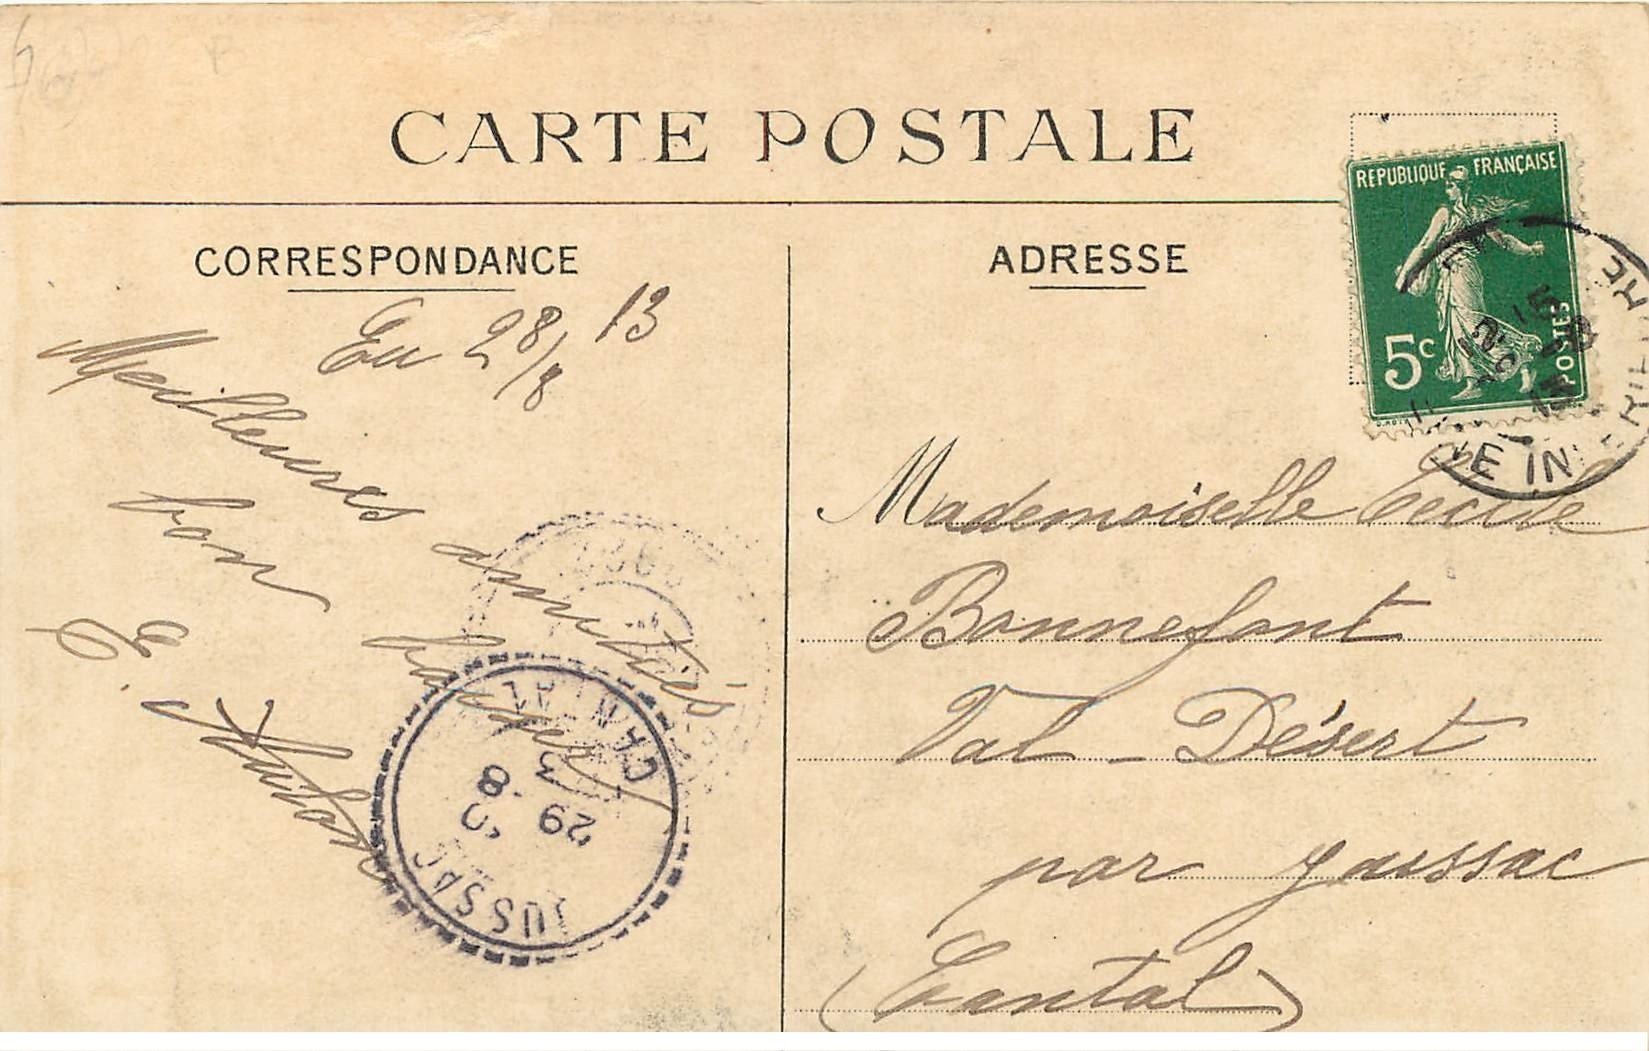 CARTE POSTALE
CORRESPONDANCE
Eu 28/8 13
Meilleures amitiés
bon baiser
E.
ADRESSE
REPUBLIQUE FRANÇAISE
5c
POSTES
Mademoiselle Cecile
Bonnefont
Val - Désert
par Jussac
(Cantal)
CANTAL
29 - 8
13
JUSSAC